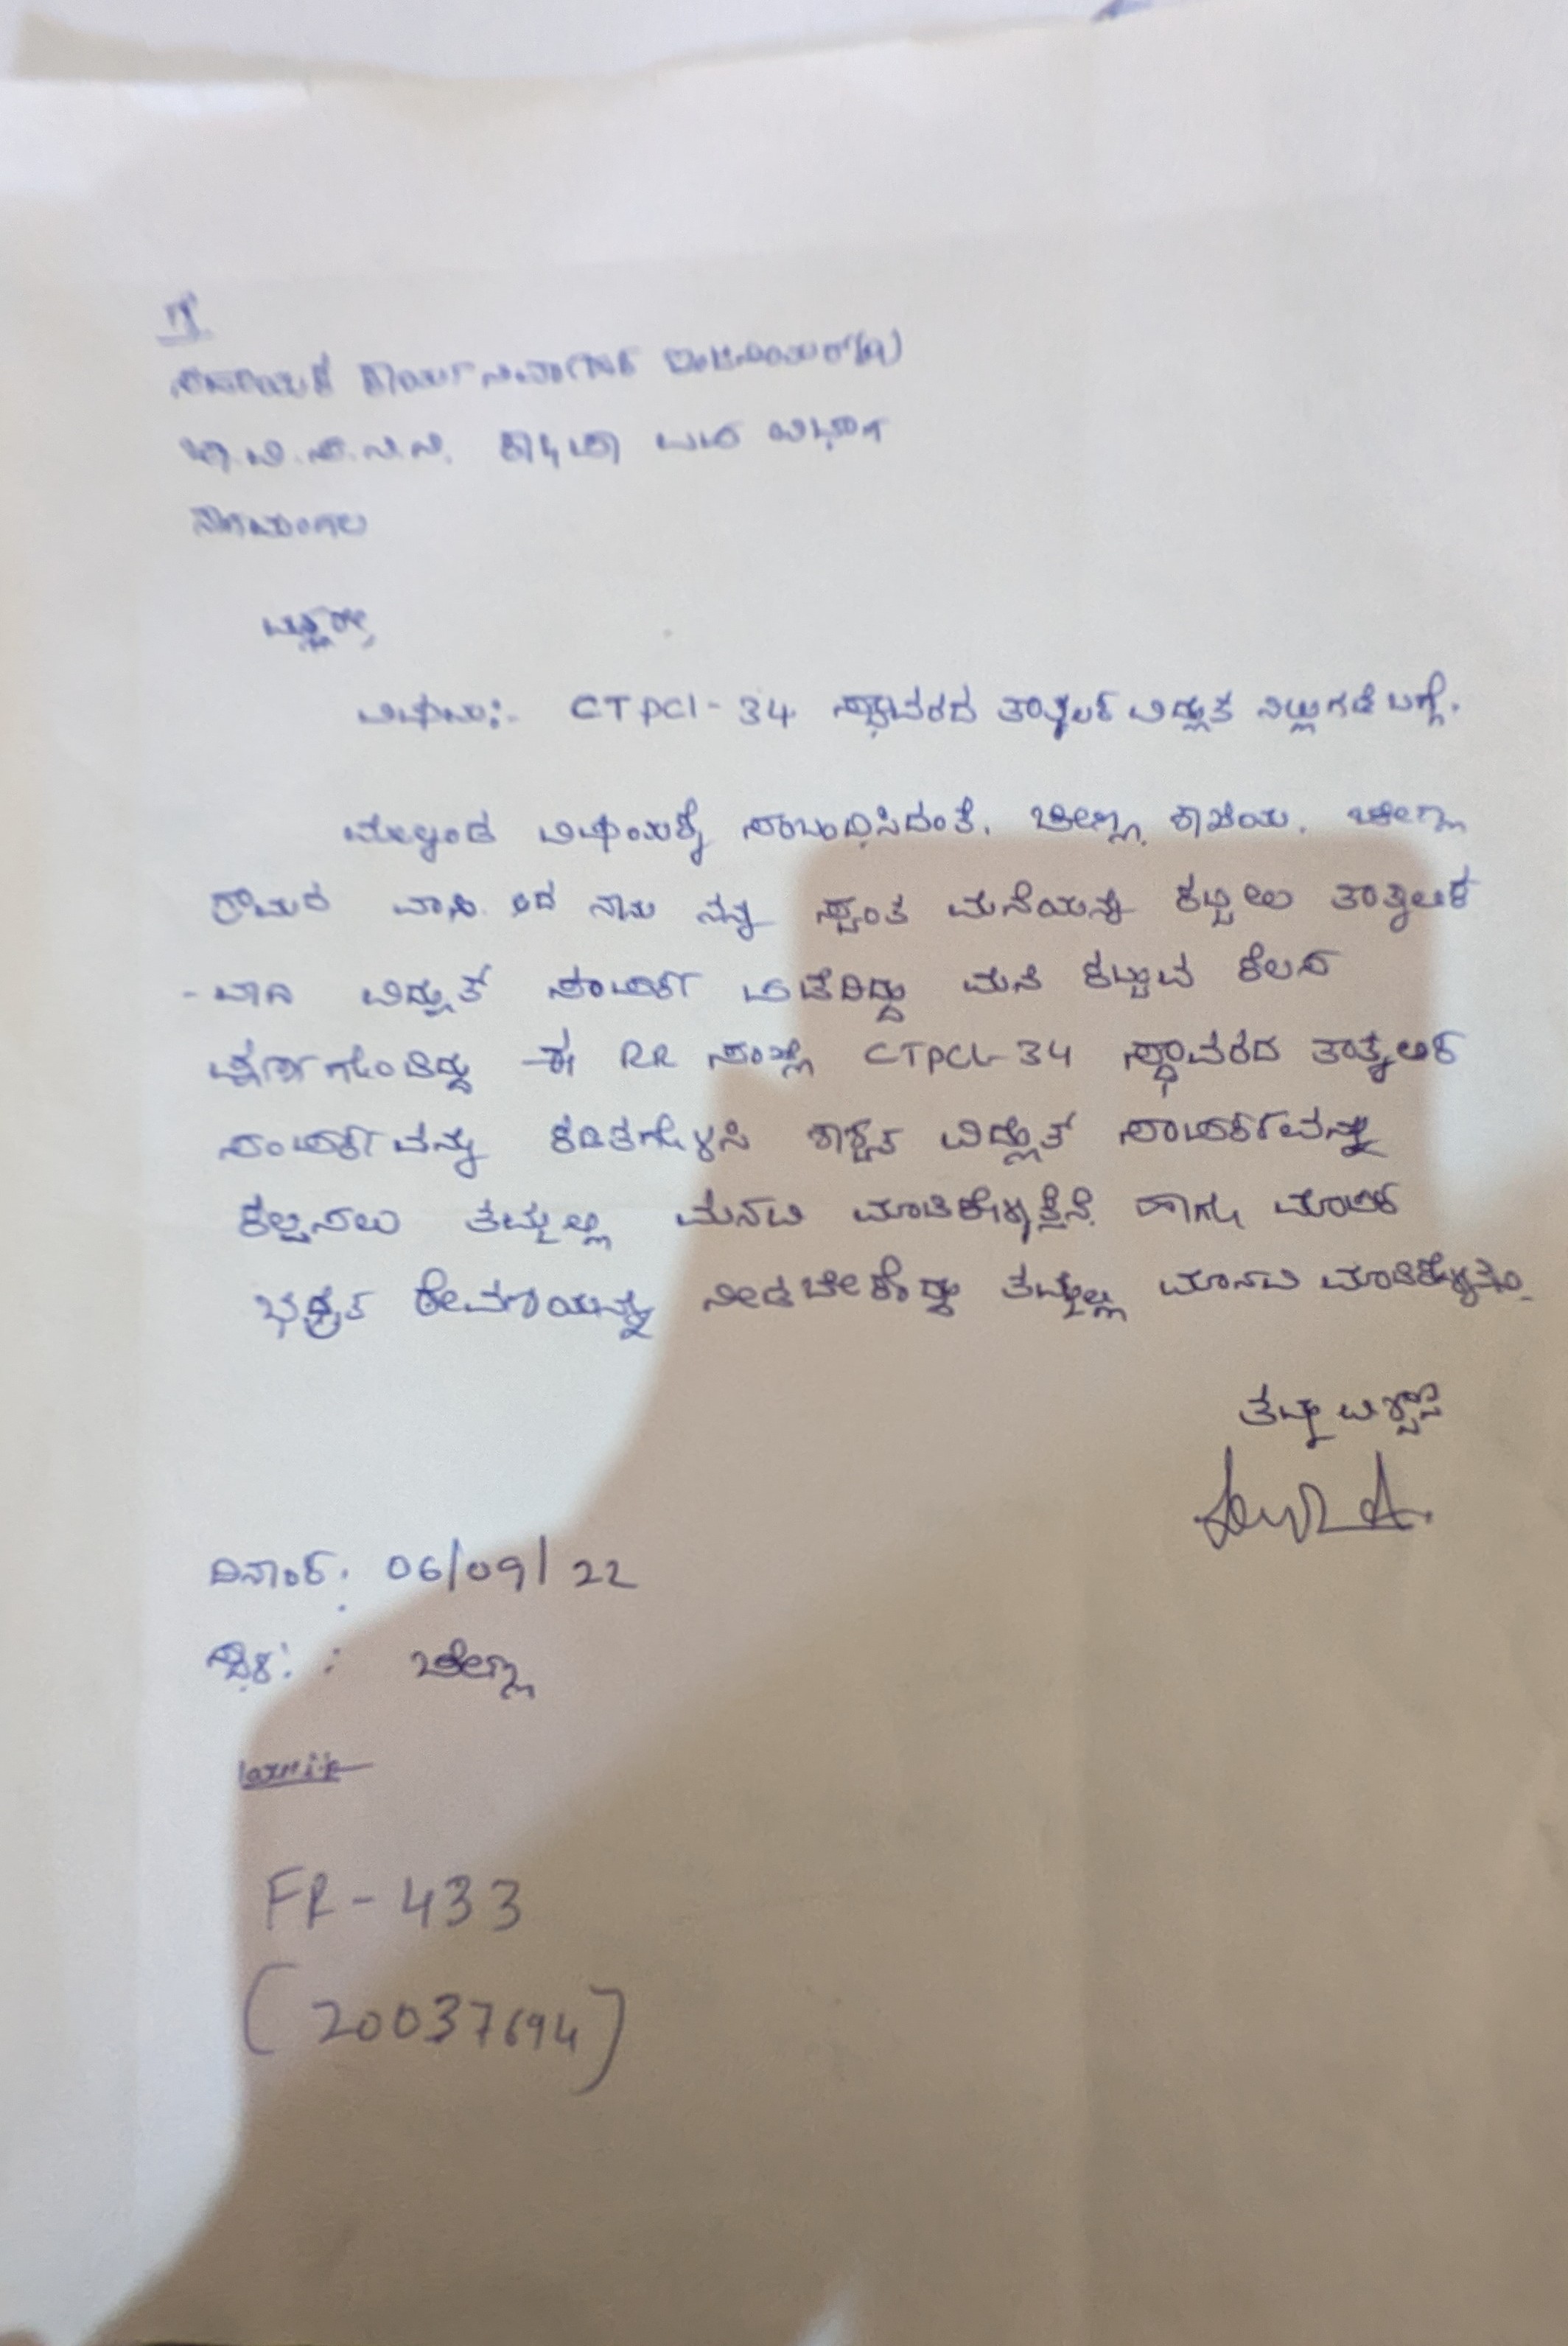 ಗೆ
ಸಹಾಯಕ ಕಾರ್ಯನಿರ್ವಾಹಕ ಇಂಜಿನಿಯರ್(ವಿ)
ಚಾ.ವಿ.ಸ.ನಿ.ನಿ. ಕಾ&ಪಾ ಉಪ ವಿಭಾಗ
ನಾಗಮಂಗಲ
ಮಾನ್ಯರೇ,
ವಿಷಯ:- CTPCL-34 ಸ್ಥಾವರದ ತಾತ್ಕಲಿಕ ವಿದ್ಯುತ ನಿಲ್ಲುಗಡೆ ಬಗ್ಗೆ.
ಮೇಲ್ಕಂಡ ವಿಷಯಕ್ಕೆ ಸಂಬಂಧಿಸಿದಂತೆ, ಚೀಣ್ಯ ಶಾಖೆಯ, ಚೀಣ್ಯ
ಗ್ರಾಮದ ವಾಸಿ ಆದ ನಾನು ನನ್ನ ಸ್ವಂತ ಮನೆಯನ್ನು ಕಟ್ಟಲು ತಾತ್ಕಲಿಕ
-ವಾಗಿ ವಿದ್ಯುತ್ ಸಂಪರ್ಕ ಪಡೆದಿದ್ದು ಮನೆ ಕಟ್ಟುವ ಕೆಲಸ
ಪೂರ್ಣಗೊಂಡಿದ್ದು ಈ RR ಸಂಖ್ಯೆ CTPCL-34 ಸ್ಥಾವರದ ತಾತ್ಕಲಿಕ
ಸಂಪರ್ಕವನ್ನು ಕಡಿತಗೊಳಿಸಿ ಶಾಶ್ವತ ವಿದ್ಯುತ್ ಸಂಪರ್ಕವನ್ನು
ಕಲ್ಪಿಸಲು ತಮ್ಮಲ್ಲಿ ಮನವಿ ಮಾಡಿಕೊಳ್ಳುತ್ತೇನೆ. ಹಾಗು ಮಾಪಕ
ಭದ್ರತ ಠೇವಣಿಯನ್ನು ನೀಡಬೇಕೆಂದು ತಮ್ಮಲ್ಲಿ ಮನವಿ ಮಾಡಿಕೊಳ್ಳುತ್ತೇನೆ.
ತಮ್ಮ ವಿಶ್ವಾಸಿ
ದಿನಾಂಕ: 06/09/22
ಸ್ಥಳ: : ಚೀಣ್ಯ
FR-433
(20037694)